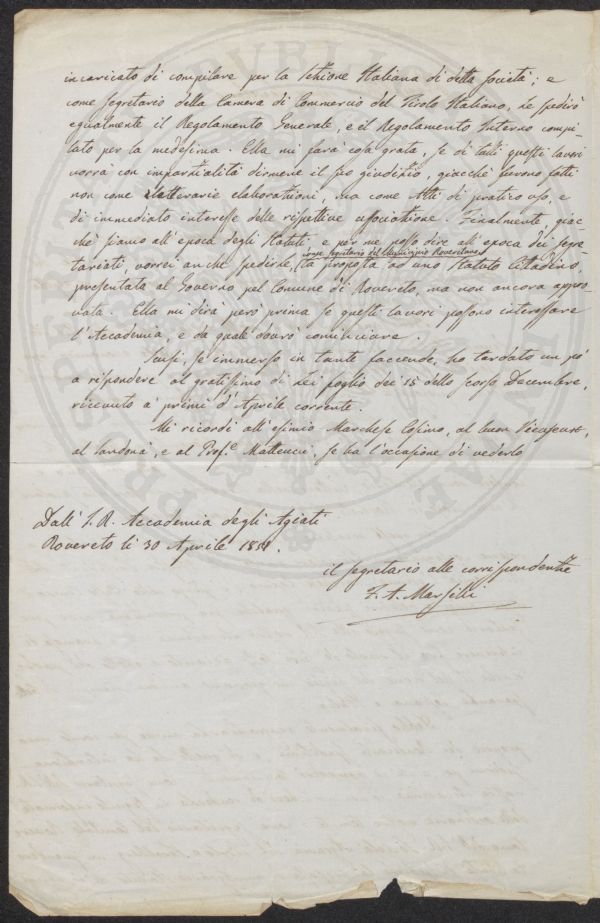 incaricato di compilare per la Sezione Italiana di detta Società; e
come Segretario della Camera di Commercio del Tirolo Italiano, Le spedirò
egualmente il Regolamento Generale, e il Regolamento Interno compi-
lato per la medesima. Ella mi farà cosa grata, se di tutti questi lavori
vorrà con imparzialità dirmene il suo giudizio, giacchè furono fatti
non come letterarie elaborazioni, ma come Atti di pratico uso, e
di immediato interesse delle rispettive associazione. Finalmente giac-
chè siamo all'epoca degli Statuti, e per me posso dire all'epoca dei Segre-
tariati, vorrei anche spedirle, come Segretario del Municipio Roveretano, la proposta ad uno Statuto Cittadino,
presentata al Governo pel Comune di Rovereto, ma non ancora appro-
vata. Ella mi dirà però prima se questi lavori possono interessare
l'Accademia, e da quale dovrò cominciare.
Scusi, se immerso in tante faccende, ho tardato un pò
a rispondere al gratissimo di Lei foglio dei 15 dello scorso Decembre,
ricevuto a' primi d'Aprile corrente.
Mi ricordi all'esimio Marchese Cosimo, al buon Vieusseux,
al  e al Prof.e Matteucci, se ha l'occasione di vederlo
Dall' I. R. Accademia degli Agiati
Rovereto li 30 Aprile 1851.
il Segretario alle corrispondenze
F. A. Marsilli